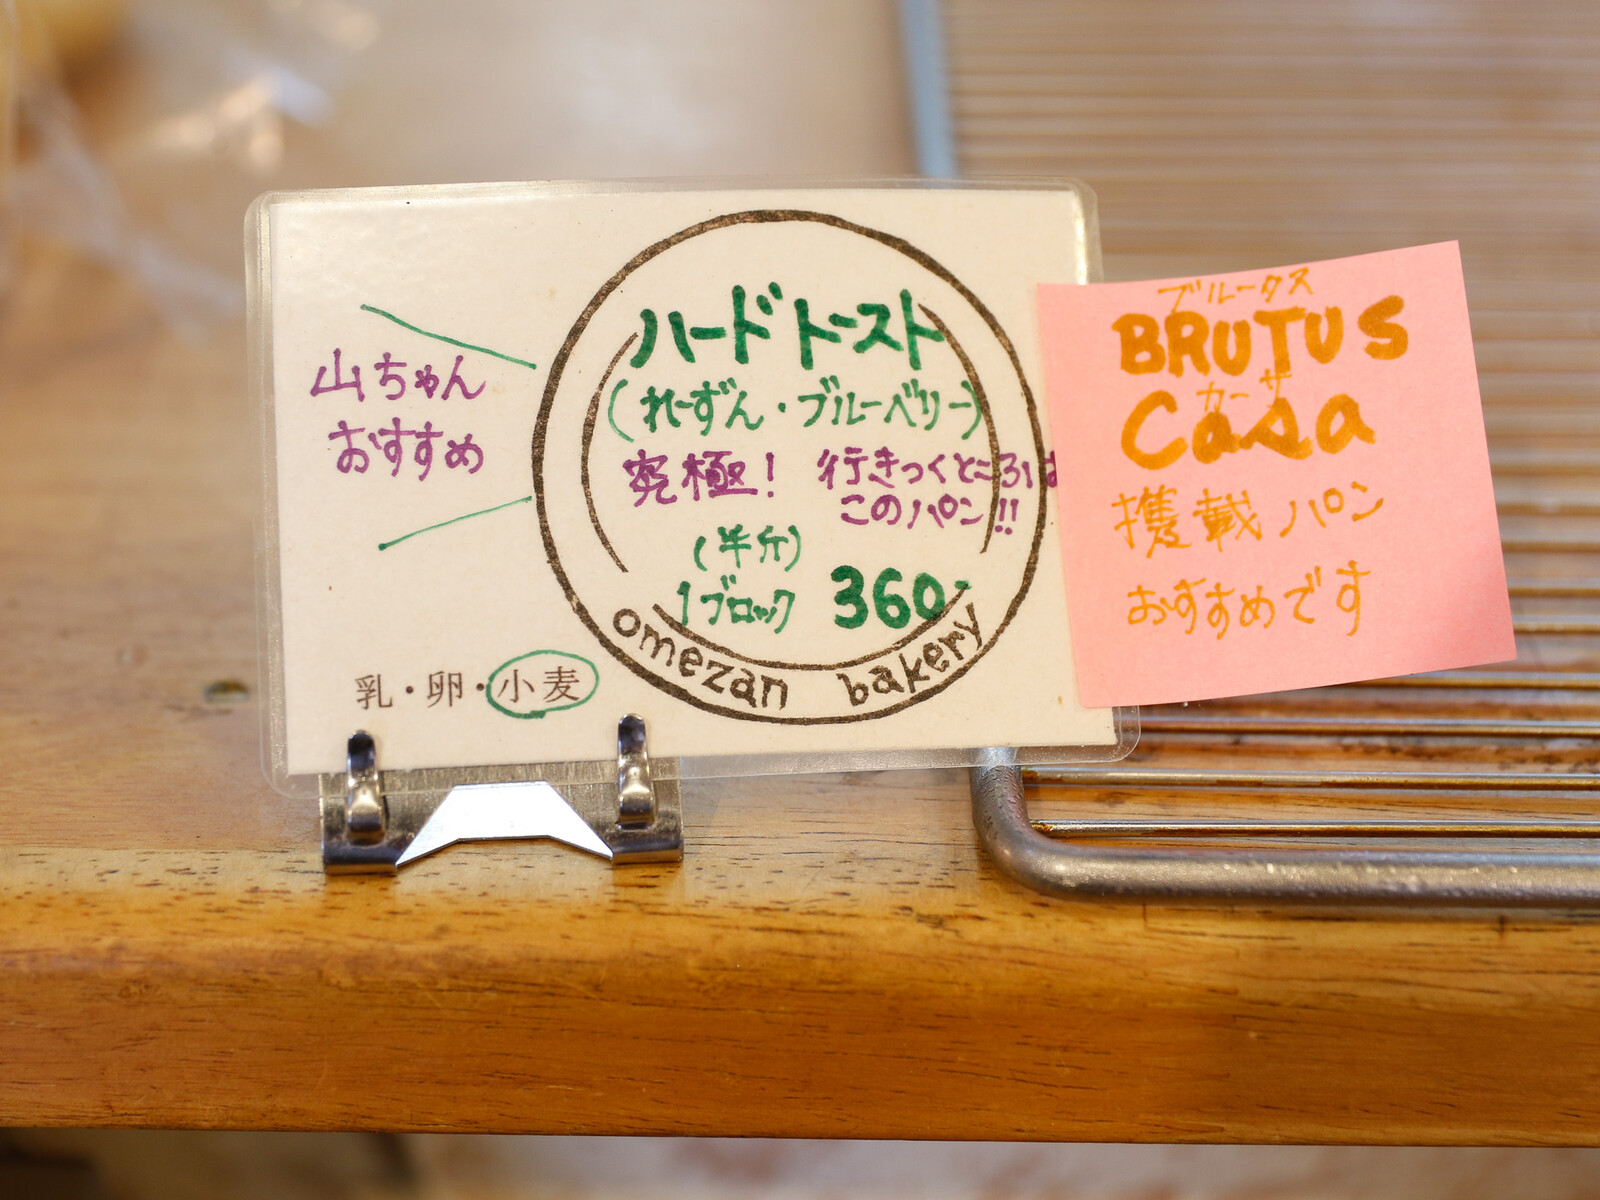 山ちゃん
おすすめ
ハードトースト
(れーずん・ブルーベリー)
究極! 行きつくところは
このパン!!
(半分)
1ブロック 360-
omezan bakery
乳・卵・小麦
ブルータス
BRUTUS
カーサ
Casa
携載パン
おすすめです